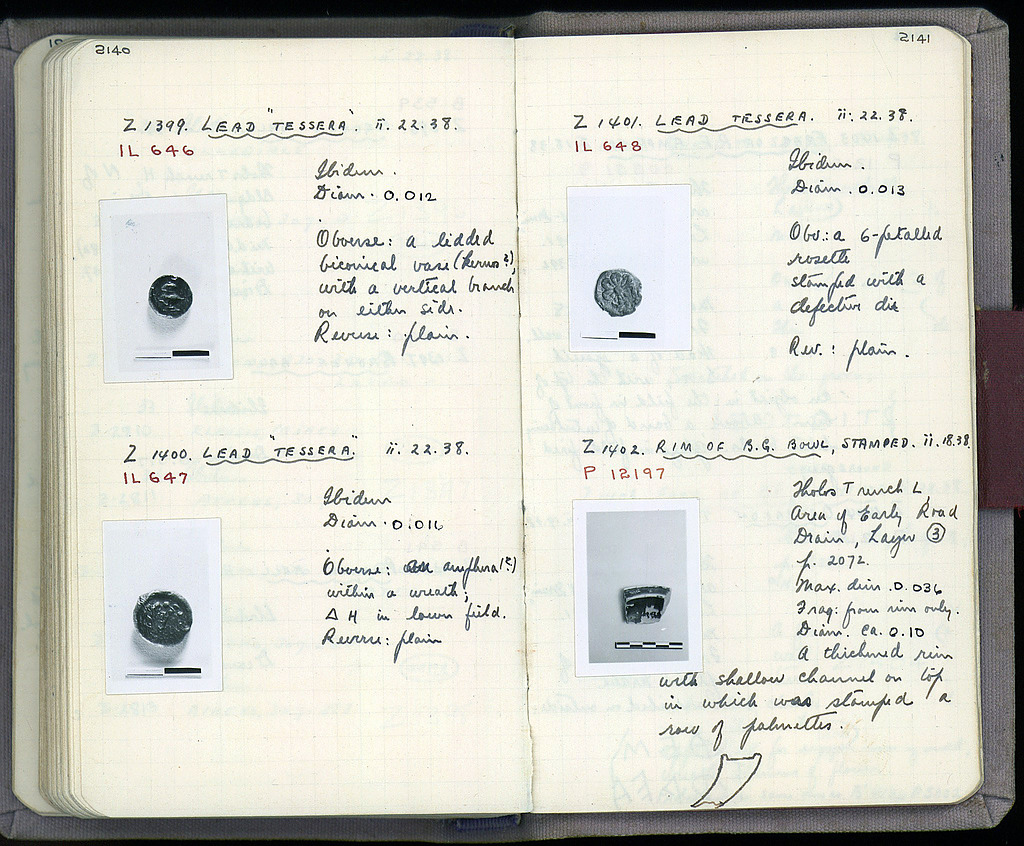 2140
Z 1399. LEAD "TESSERA". II. 22. 38.
IL 646
Ibidem.
Diam. 0.012
Obverse: a lidded
biconical vase (kernos?),
with a vertical branch
on either side.
Reverse: plain.
Z 1400. LEAD "TESSERA". II. 22. 38.
IL 647
Ibidem
Diam. 0.016
Obverse: an amphora (?)
within a wreath;
Δ H in lower field.
Reverse: plain
2141
Z 1401. LEAD TESSERA. II. 22. 38.
IL 648
Ibidem.
Diam. 0.013
Obv.: a 6-petalled
rosette
stamped with a
defective die
Rev.: plain.
Z 1402. RIM OF B.G. BOWL, STAMPED. II. 18. 38
P 12197
Tholos Trench L,
Area of Early Road
Drain, Layer ③
p. 2072.
Max. dim. 0.036
Frag: from rim only.
Diam. ca. 0.10
A thickened rim
with shallow channel on top
in which was stamped a
row of palmettes.